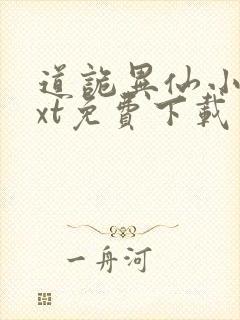 道詭異仙小
xt免費下載
一舟河